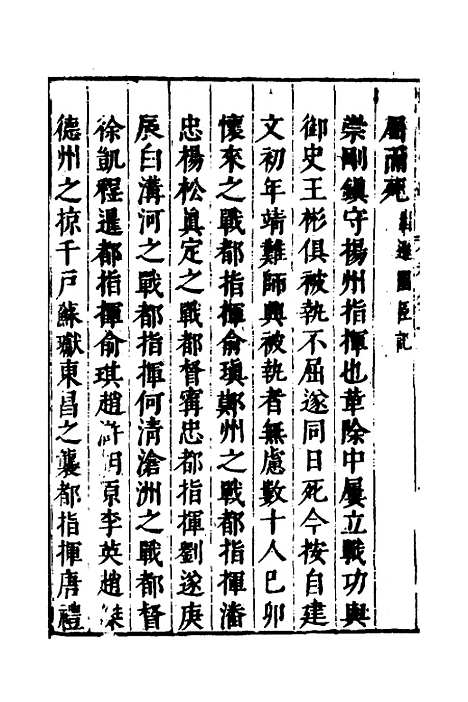 屬而死 革過臣記
崇剛鎮守楊州指揮也革除中屢立戰功與
御史王彬俱被執不屈遂同日死今按自建
文初年靖難師興被執者無慮數十人己卯
懷來之戰都指揮俞瑱鄚州之戰都指揮潘
忠楊松眞定之戰都督寗忠都指揮劉遂庚
辰白溝河之戰都指揮何清滄洲之戰都督
徐凱程暹都指揮俞琪趙滸胡原李英趙
德州之掠千戶蘇瓛東昌之襲都指揮唐禮